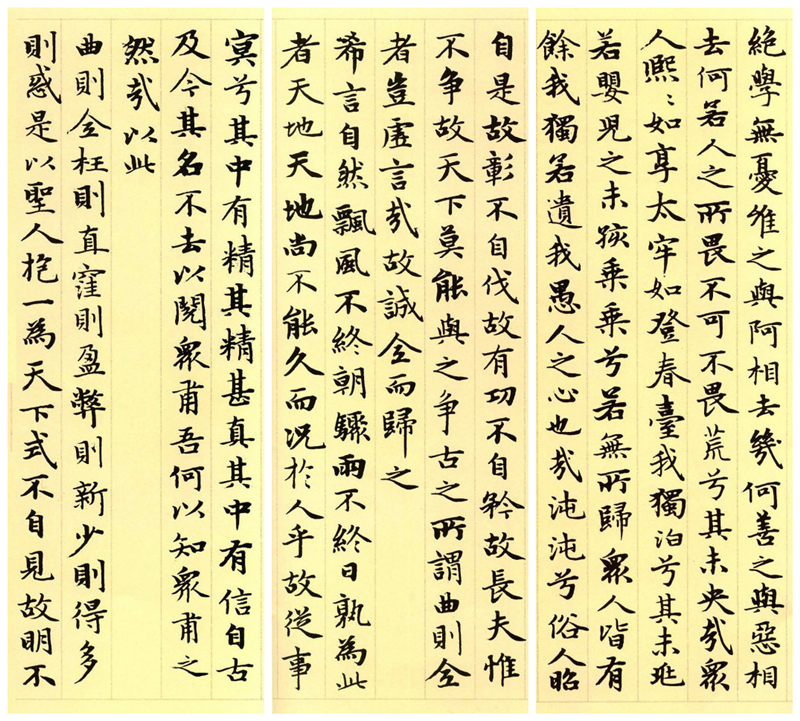 絶學無憂維之與阿相去幾何善之與惡相
去何若人之所畏不可不畏荒兮其未央哉眾
人熙〻如享太牢如登春臺我獨泊兮其未兆
若嬰兒之未孩乘乘兮若無所歸眾人皆有
餘我獨若遺我愚人之心也哉沌沌兮俗人昭
自是故彰不自伐故有功不自矜故長夫惟
不争故天下莫能與之争古之所謂曲則全
者豈虛言哉故誠全而歸之
希言自然飄風不終朝驟雨不終日孰為此
者天地天地尚不能久而況於人乎故從事
冥兮其中有精其精甚真其中有信自古
及今其名不去以閱眾甫吾何以知眾甫之
然哉以此
曲則全枉則直窪則盈弊則新少則得多
則惑是以聖人抱一為天下式不自見故明不